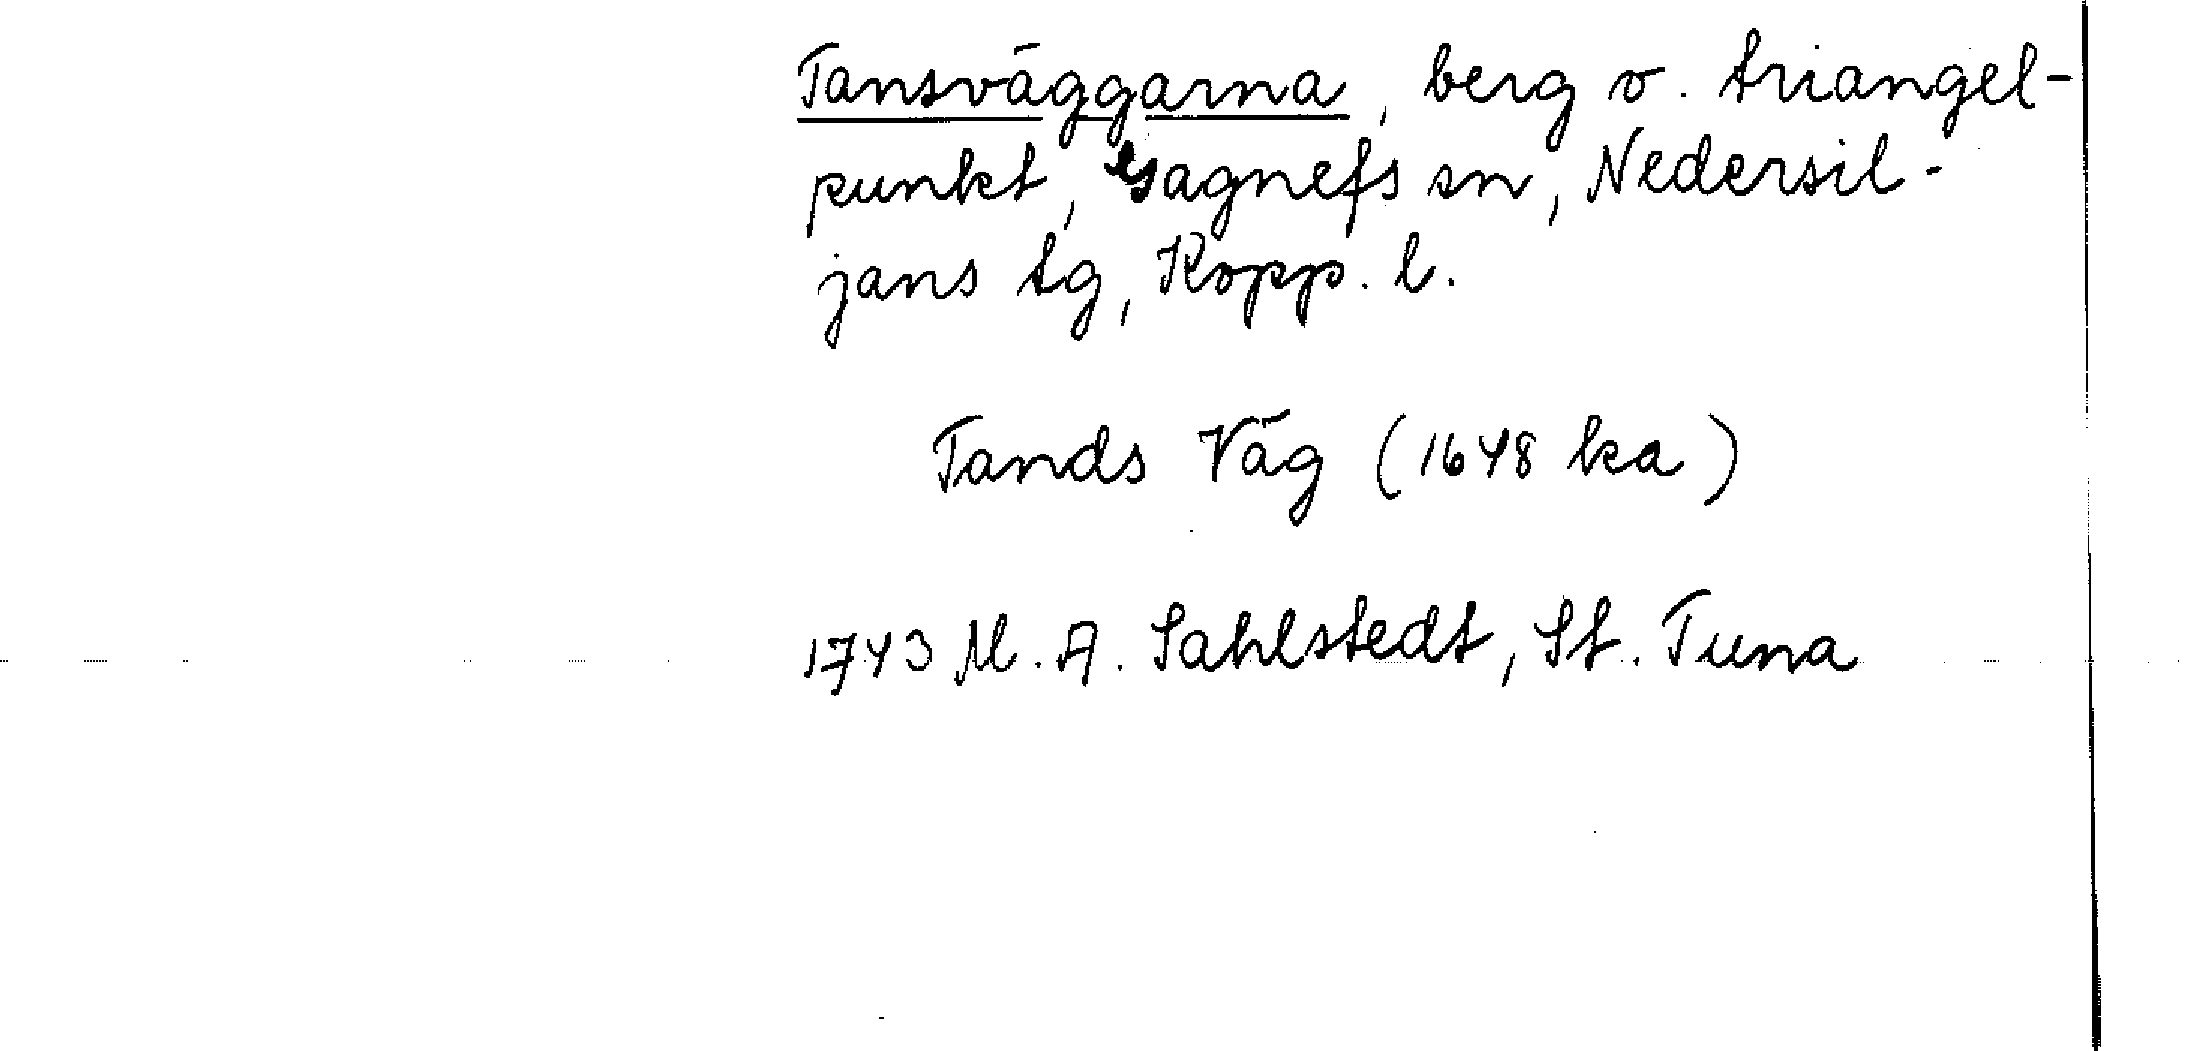 Tansväggarna, berg o. triangel-
punkt, Gagnefs sn, Nedersil-
jans tg, Kopp. l.
Tands Väg (1648 ka)
1743 M. A. Sahlstedt, St. Tuna